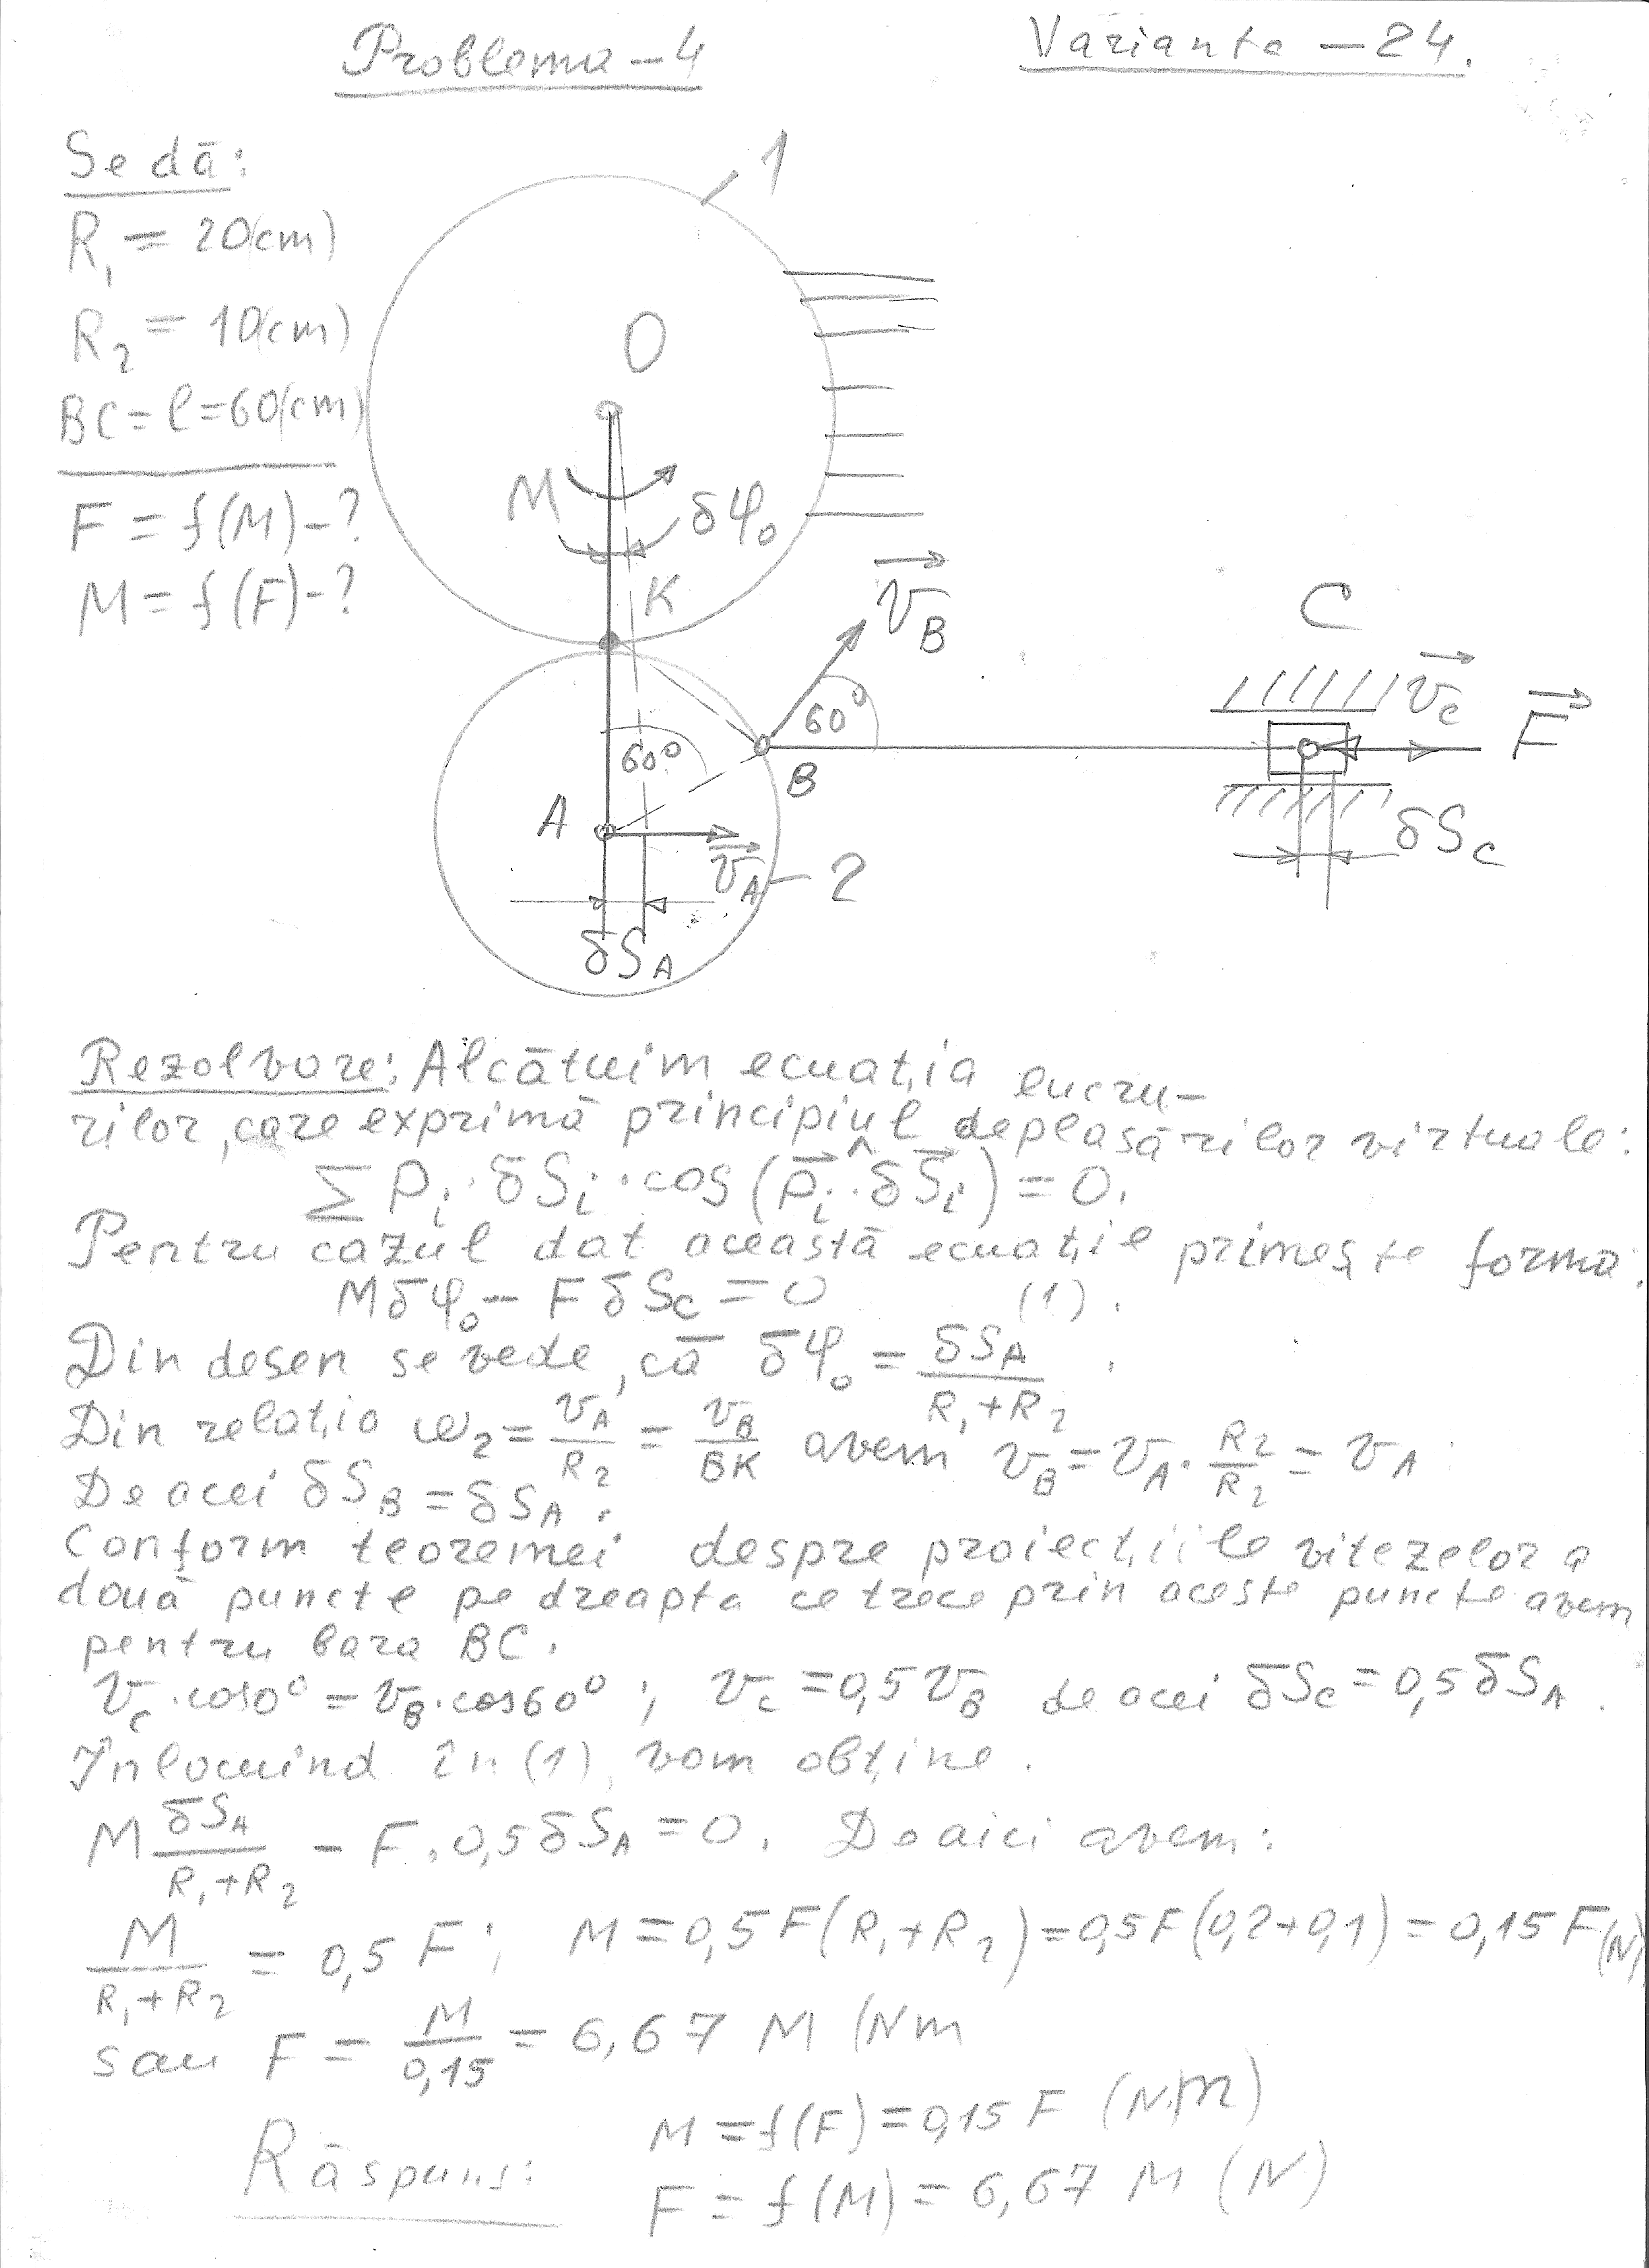 Problema – 4
Varianta – 24.
Se dă:
R₁ = 20(cm)
R₂ = 10(cm)
BC = l = 60(cm)
F = f(M) – ?
M = f(F) – ?
1
O
M
δφ₀
K
v_B
60°
C
v_C
F
60°
B
A
v_A
2
δS_C
δS_A
Rezolvare: Alcătuim ecuația lucru-
rilor, care exprimă principiul deplasărilor virtuale:
∑ Pᵢ · δSᵢ · cos (Pᵢ ^ δSᵢ) = 0.
Pentru cazul dat această ecuație primește forma:
Mδφ₀ – F δS_C = 0 (1).
Din desen se vede, că δφ₀ = δS_A / (R₁ + R₂).
Din relația ω₂ = v_A / R₂ = v_B / BK avem v_B = v_A · R₂ / R₂ = v_A.
De acei δS_B = δS_A.
Conform teoremei despre proiecțiile vitezelor a
două puncte pe dreapta ce trece prin aceste puncte avem
pentru bara BC.
v_C · cos0° = v_B · cos60° ; v_C = 0,5 v_B de acei δS_C = 0,5 δS_A.
Înlocuind în (1), vom obține.
M δS_A / (R₁ + R₂) – F · 0,5 δS_A = 0. De aici avem:
M / (R₁ + R₂) = 0,5 F ; M = 0,5 F (R₁ + R₂) = 0,5 F (0,2 + 0,1) = 0,15 F (N)
sau F = M / 0,15 = 6,67 M (Nm
M = f(F) = 0,15 F (N.m)
Răspuns:
F = f(M) = 6,67 M (N)